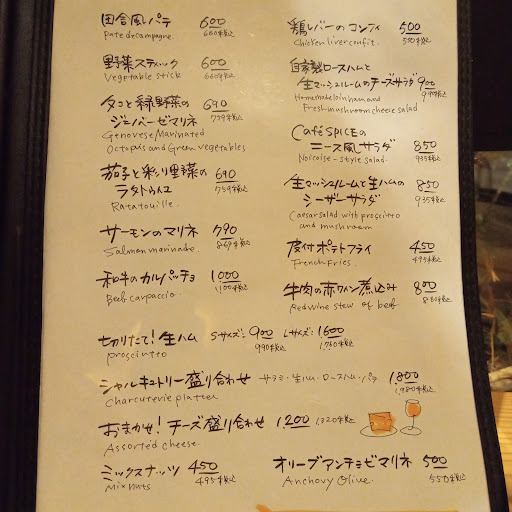 田舎風パテ 600
Pate de campagne. 660税込
野菜スティック 600
Vegetable stick 660税込
タコと緑野菜の 690
ジェノバーゼマリネ 759税込
Genovese Marinated
Octopus and Green vegetables
茄子と彩り野菜の 690
ラタトゥイユ 759税込
Ratatouille.
サーモンのマリネ 790
Salmon marinade. 869税込
和牛のカルパッチョ 1000
Beef carpaccio. 1,100税込
鶏レバーのコンフィ 500
Chicken liver confit. 550税込
自家製ロースハムと
生マッシュルームのチーズサラダ 900
Homemade loin ham and 990税込
Fresh mushroom cheese salad.
Café SPICEの
ニース風サラダ 850
Nicoise-style salad. 935税込
生マッシュルームと生ハムの 850
シーザーサラダ 935税込
Caesar salad with proscitto
and mushroom
皮付ポテトフライ 450
French fries. 495税込
牛肉の赤ワイン煮込み 800
Red wine stew of beef 880税込
切りたて!生ハム Sサイズ:900 Lサイズ:1600
prosciutto 990税込 1,760税込
シャルキュトリー盛り合わせ サラミ・生ハム・ロースハム・パテ 1,800
Charcuterie platter 1,980税込
おまかせ!チーズ盛り合わせ 1,200 1,320税込
Assorted cheese.
ミックスナッツ 450
Mix nuts 495税込
オリーブアンチョビマリネ 500
Anchovy Olive. 550税込